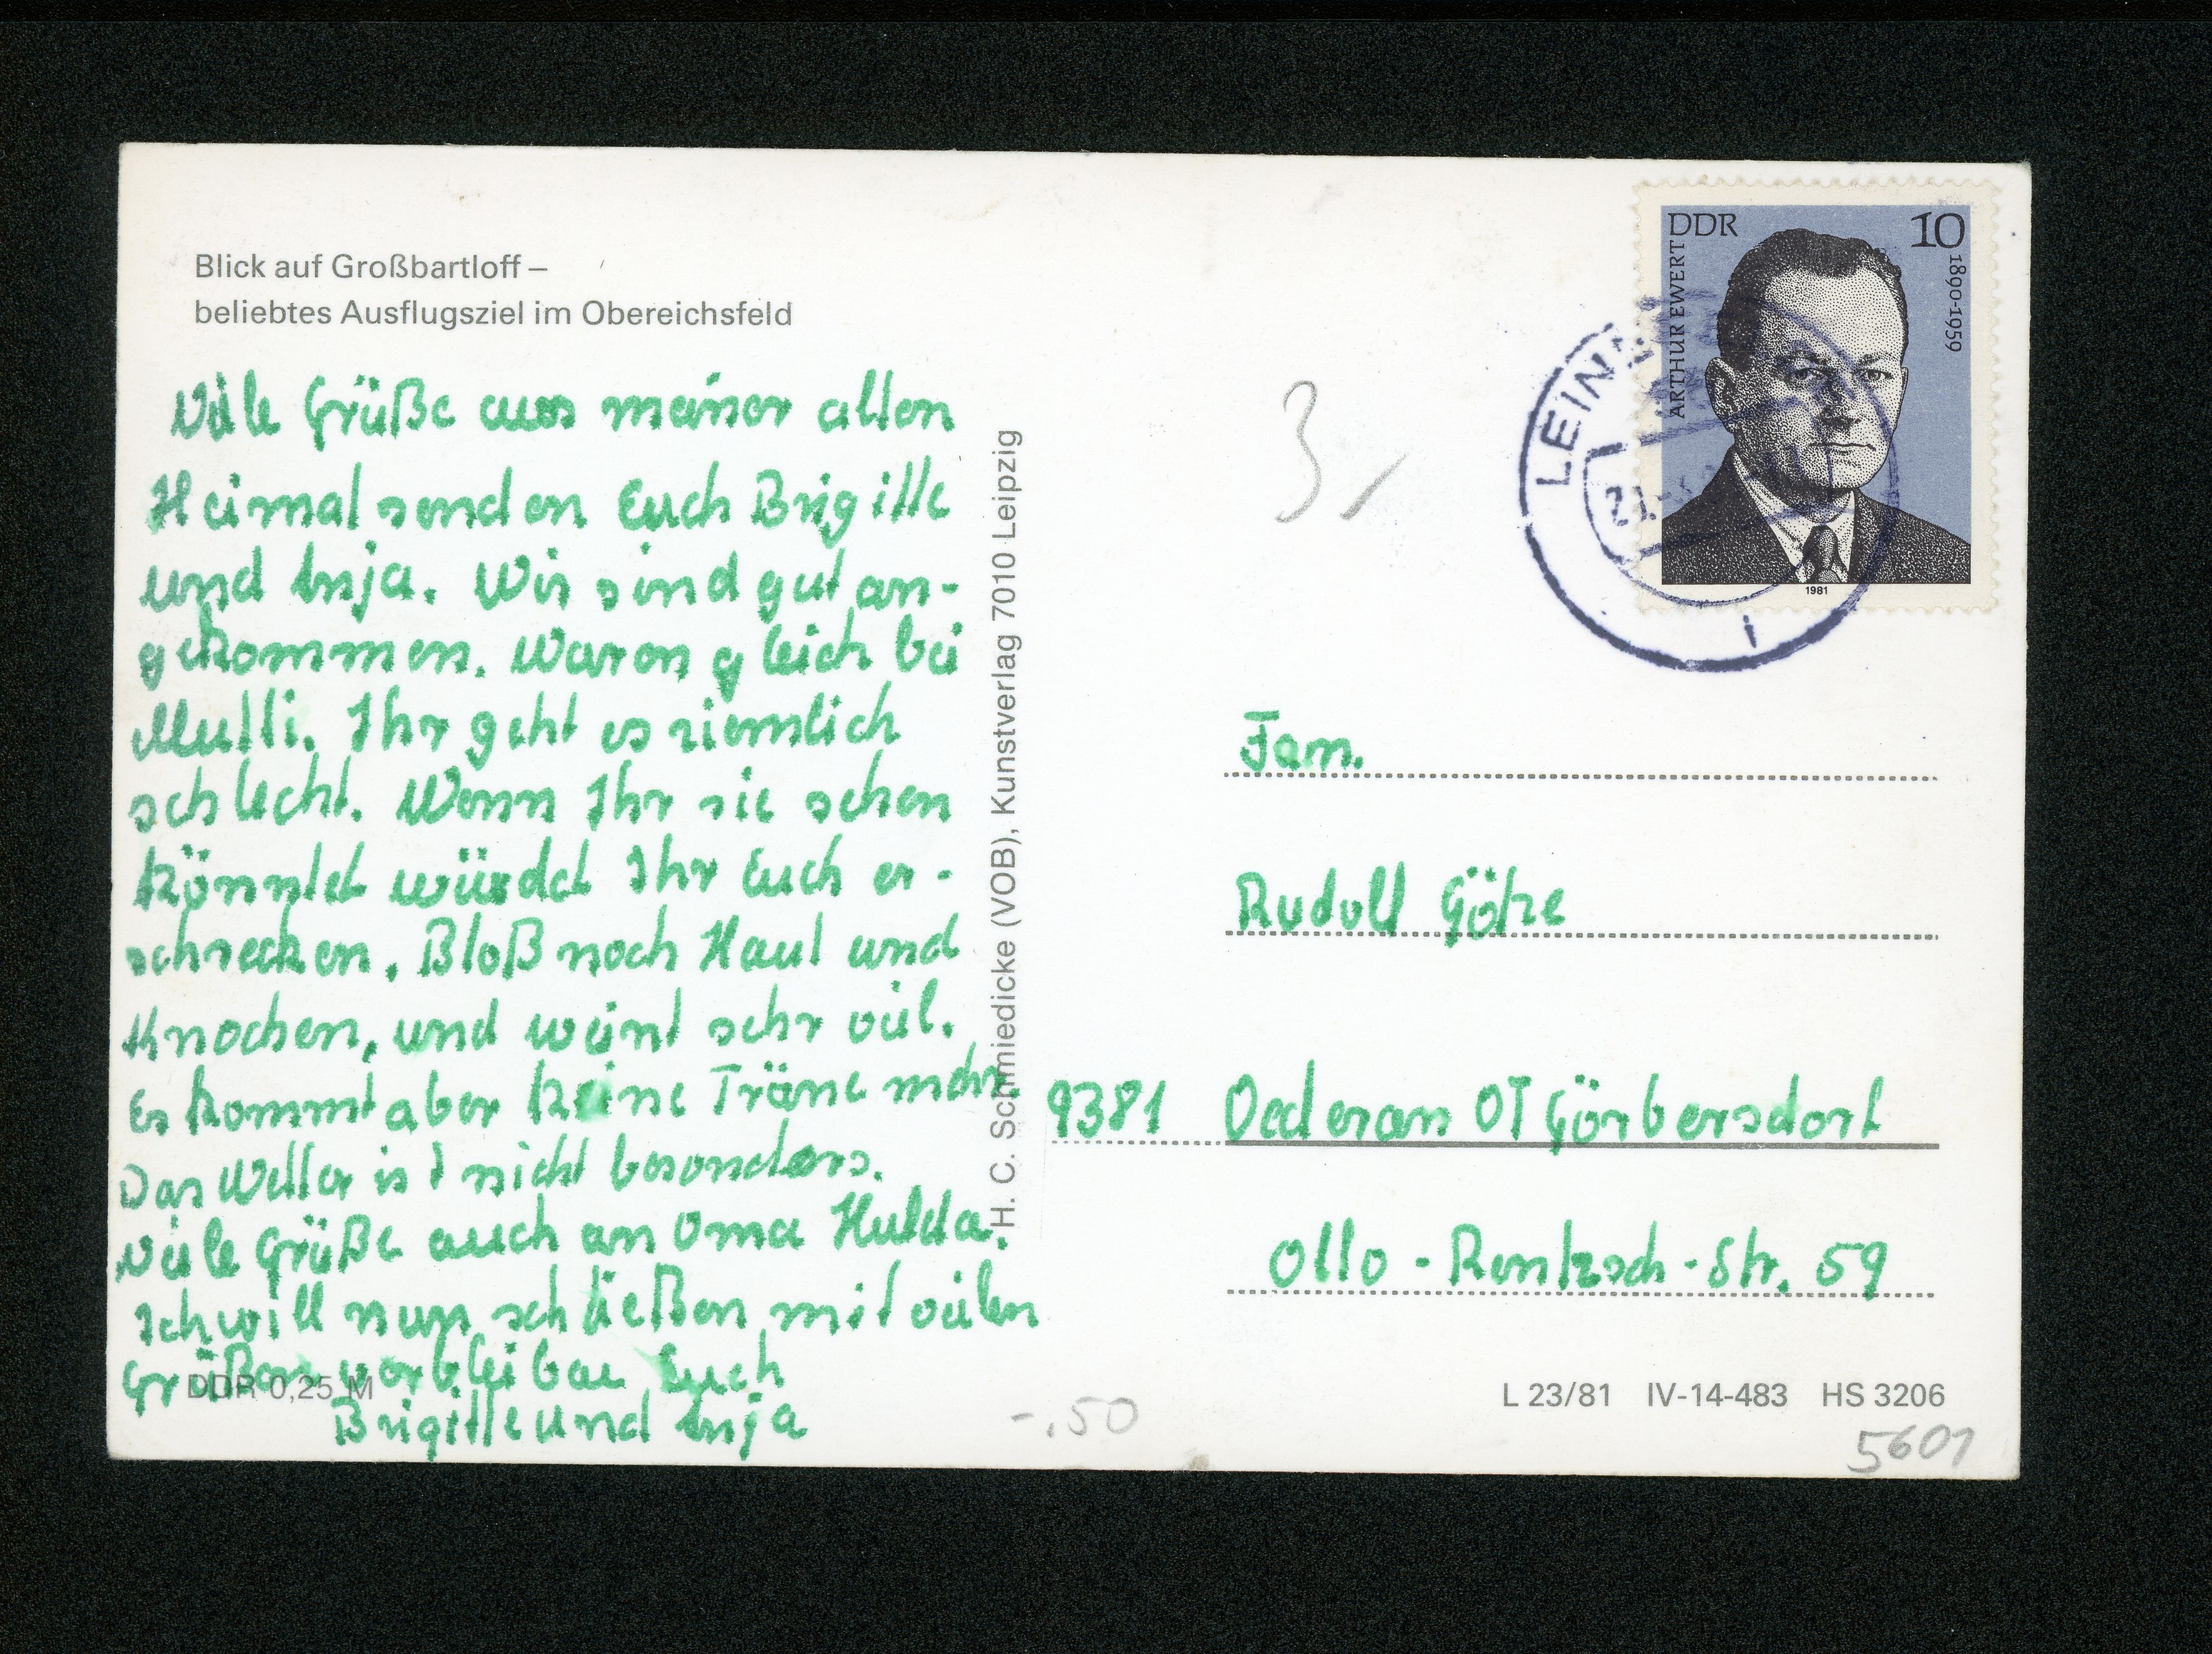 Blick auf Großbartloff –
beliebtes Ausflugsziel im Obereichsfeld
Viele Grüße aus meiner alten
Heimat senden Euch Brigitte
und Anja. Wir sind gut an-
gekommen. Waren gleich bei
Mutti. Ihr geht es ziemlich
schlecht. Wenn Ihr sie sehen
könntet würdet Ihr Euch er-
schrecken. Bloß noch Haut und
Knochen, und weint sehr viel.
Es kommt aber keine Träne mehr.
Das Wetter ist nicht besonders.
Viele Grüße auch an Oma Hulda.
Ich will nun schließen mit vielen
Grüßen verbleiben Euch
Brigitte und Anja
DDR 0,25 M
H. C. Schmiedicke (VOB), Kunstverlag 7010 Leipzig
3,
DDR 10
ARTHUR EWERT
1890-1959
1981
Fam.
Rudolf Götze
9381 Oederan OT Görbersdorf
Otto-Rentzsch-Str. 59
L 23/81 IV-14-483 HS 3206
-.50
5601